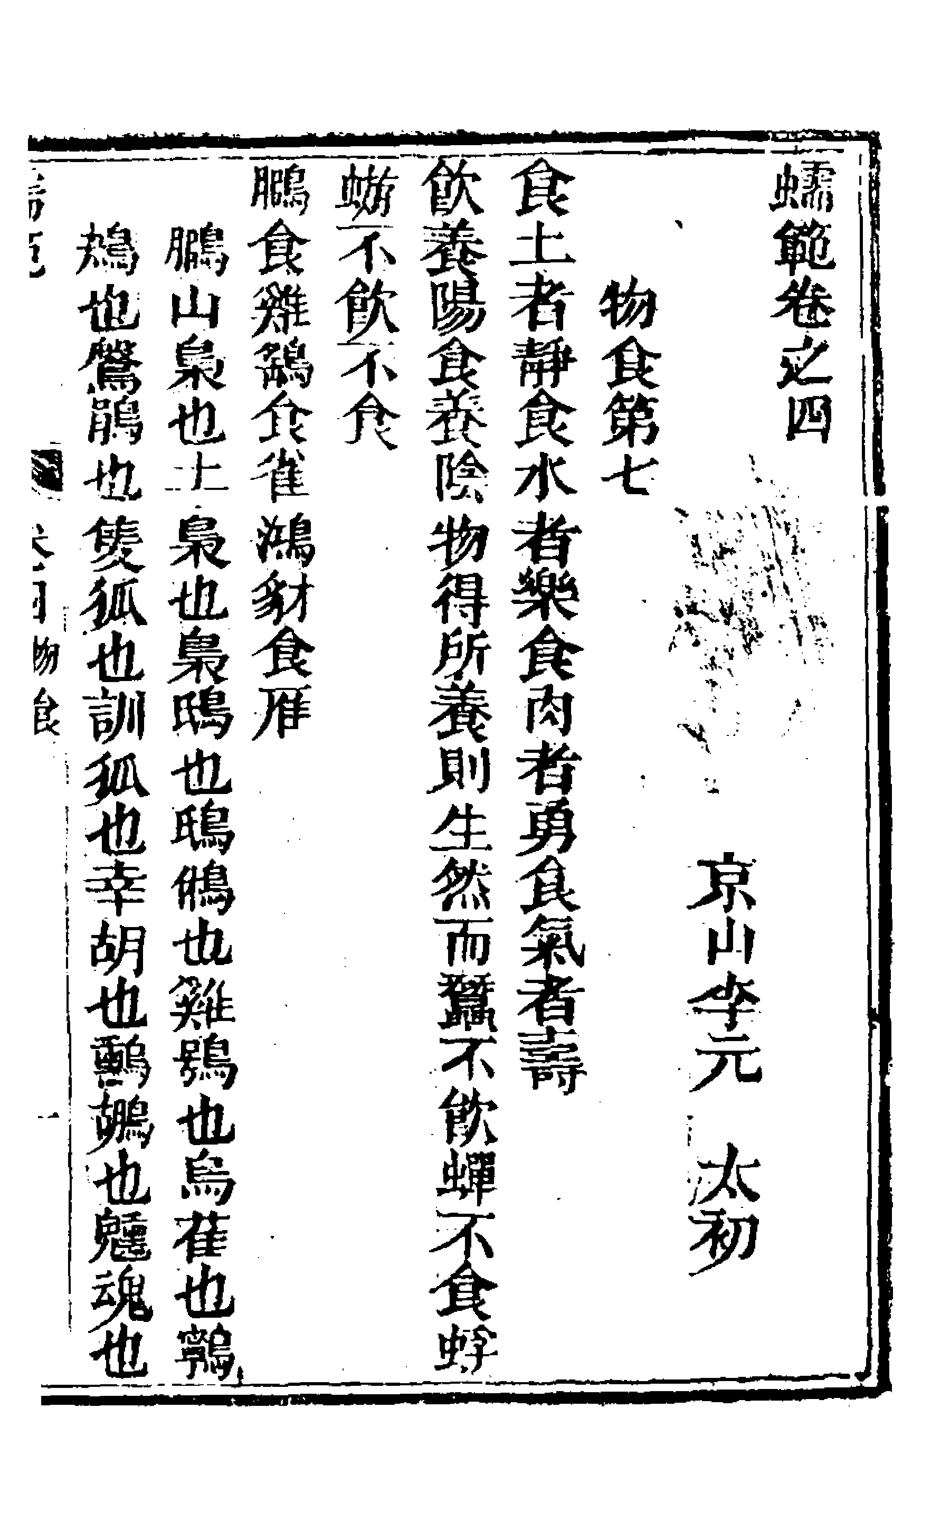 蠕範卷之四
京山李元 太初
物食第七
食土者靜食水者樂食肉者勇食氣者壽
飲養陽食養陰物得所養則生然而蠶不飲蟬不食蜉
蝣不飲不食
鵩食雞鷂食雀鴻豺食雁
鵩山梟也土梟也梟鴟也鴟鵂也雞鴞也烏萑也鸋
鴂也鷩鵑也隻狐也訓狐也幸胡也鶘也魂也
物食
一